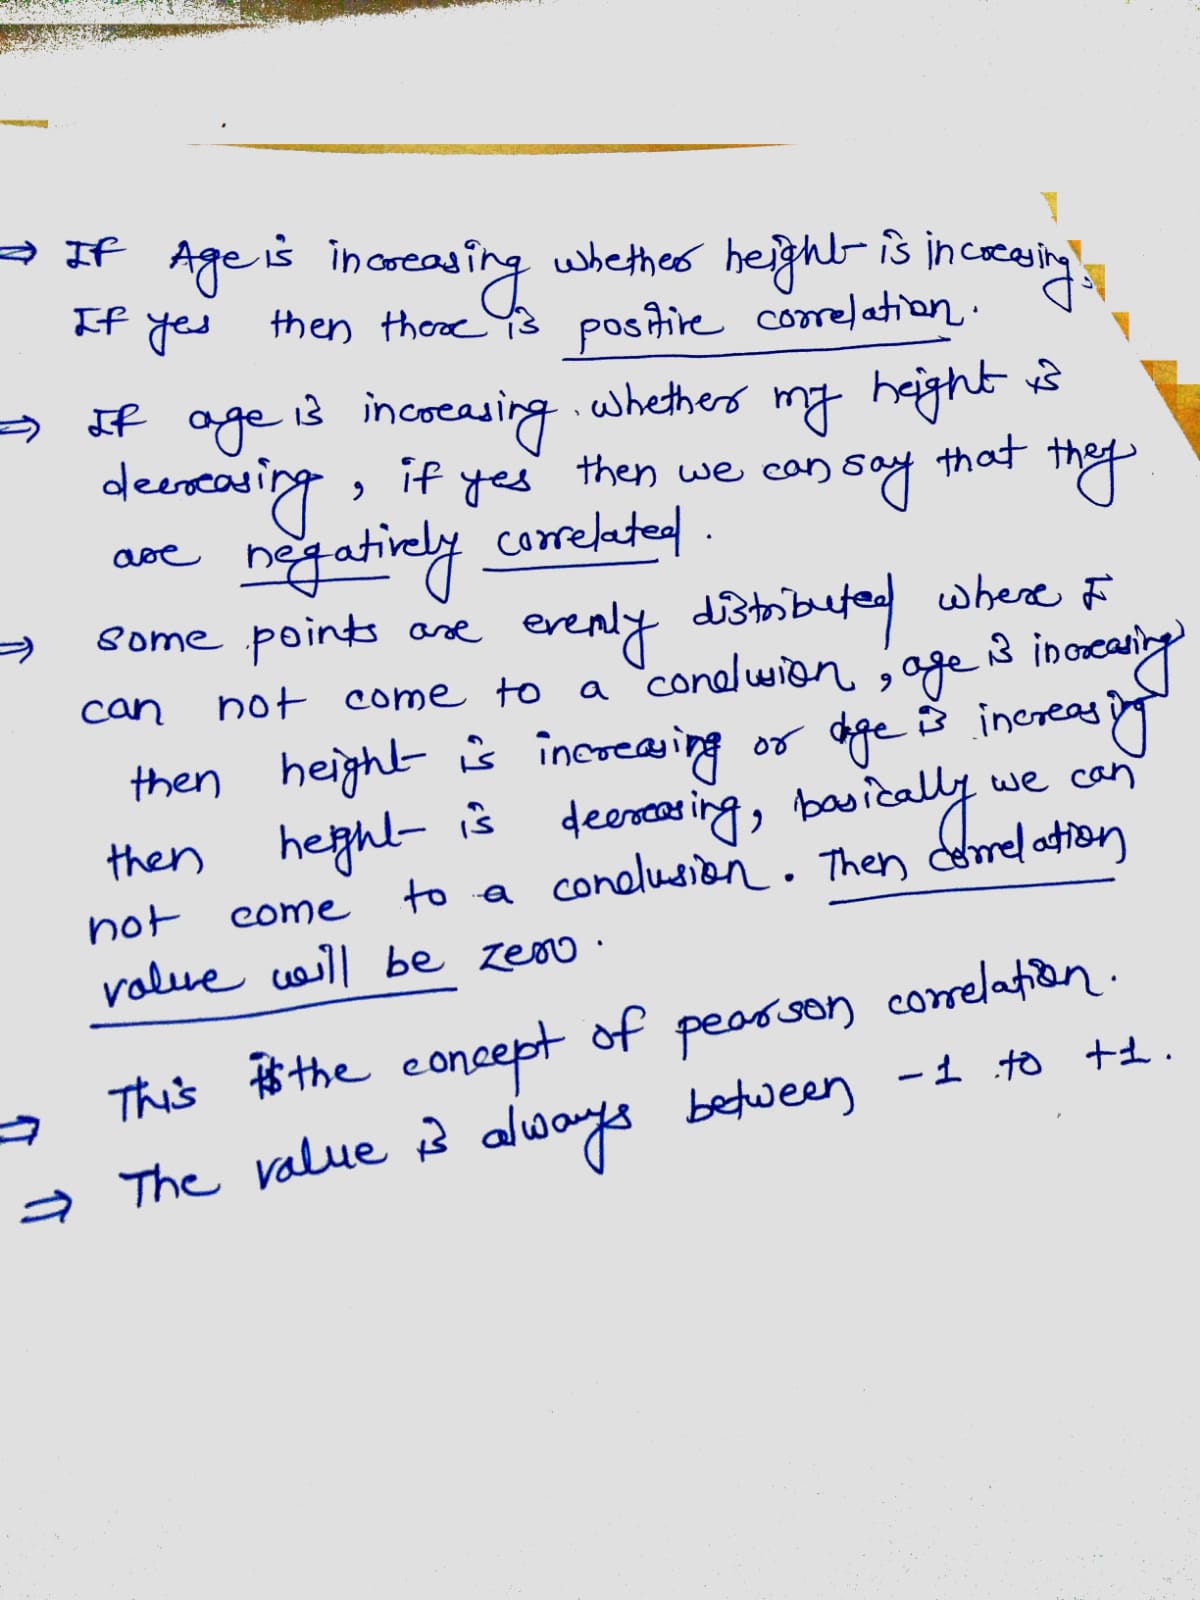 ⇒ If Age is increasing whether height is increasing,
If yes then there is positive correlation.
⇒ If age is increasing. whether my height is
decreasing, if yes then we can say that they
are negatively correlated.
⇒ some points are evenly distributed where I
can not come to a conclusion, age is increasing
then height is increasing or age is increasing
then height is decreasing, basically we can
not come to a conclusion. Then correlation
value will be zero.
⇒ This is the concept of pearson correlation.
⇒ The value is always between -1 to +1.